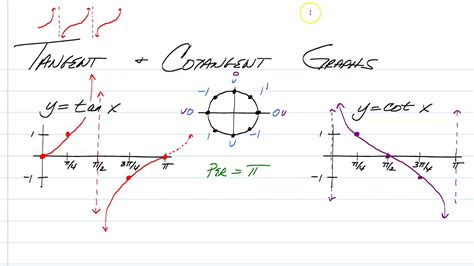 TANGENT & COTANGENT GRAPHS
y = tan x
1
-1
π/4 π/2 3π/4 π
U
-1 1
U 0 0 U
1 -1
U
PER = π
y = cot x
1
-1
π/4 π/2 3π/4 π